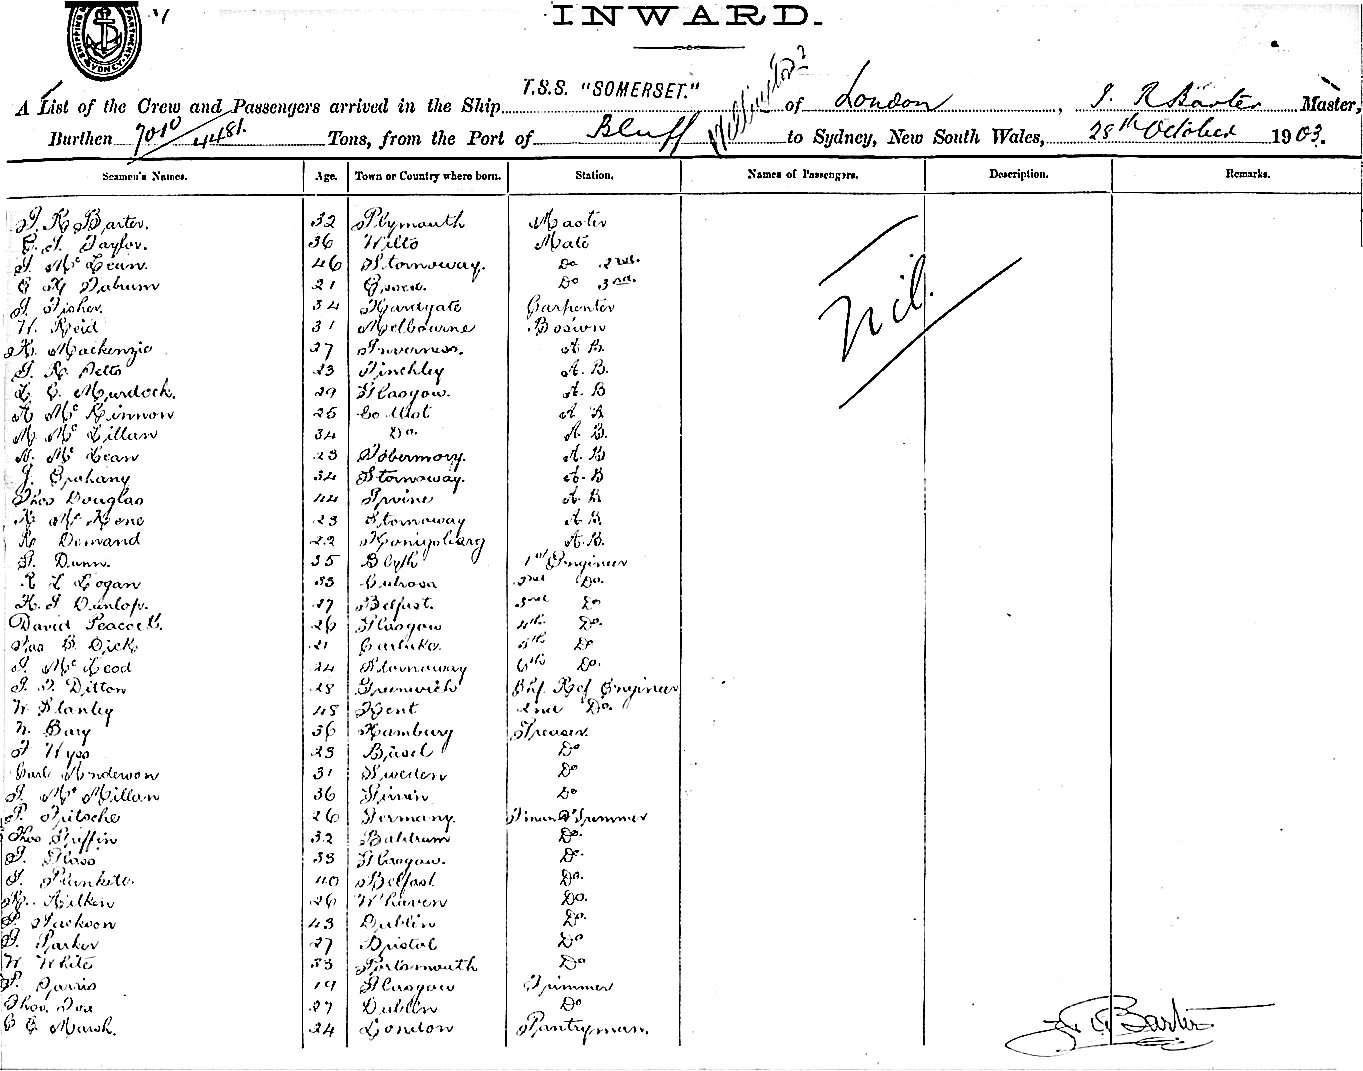 INWARD.
T.S.S. "SOMERSET."
A List of the Crew and Passengers arrived in the Ship of London, J. R Barter Master,
Burthen 7010/4481. Tons, from the Port of Bluff Wellington? to Sydney, New South Wales, 28th October 1903.
Seamen's Names. Age. Town or Country where born. Station. Names of Passengers. Description. Remarks.
J. R. Barter. 32 Plymouth Master Nil.
E. J. Taylor. 36 Wilts Mate
J. Mc Lean. 46 Stornoway. Do 2nd.
21 Do 3rd.
J. Fisher. 34 Carpenter
W. Reid 31 Melbourne Bosun
K. Mackenzie 27 Inverness. A B.
J. R. 23 Finchley A. B.
L. C. Murdock. 29 Glasgow. A. B
A Mc Kinnon 25 A B
M Mc Lillan 34 Do. A B.
A. Mc Lean 23 Tobermory. A B
J. 34 Stornoway. A. B
Thos Douglas 44 Irvine A B
K Mc 23 Stornoway A B.
R Demand 22 A. B.
J. Dunn. 35 Blyth 1st Engineer
R L Logan 33 Culross 2nd Do.
H. J Dunlop. 27 Belfast. 3rd Do
David Peacock. 26 Glasgow 4th Do.
Jas B. Dick 21 Carluke. 5th Do
J. Mc Leod 24 Stornoway 6th Do.
J. T. Ditton 28 Greenwich Chf Ref Engineer
W Stanley 48 Kent 2nd Do.
N. Bary 36 Hamburg Greaser.
F Wyss 23 Basel Do
Carl Anderson 31 Sweden Do
J. Mc Millan 36 Do
P. Fritsche 26 Germany. Fireman & Trimmer
Thos Griffin 32 Do.
J. Glass 33 Glasgow. Do.
J. Plunkett. 40 Belfast Do.
R. Aitken 26 W'haven Do.
P. Jackson 43 Dublin Do.
J. Parker 27 Bristol Do
W White 33 Portsmouth Do
P. 19 Glasgow Trimmer
Thos. Fox 27 Dublin Do
C E. Marsh. 24 London Pantryman.
J R Barter